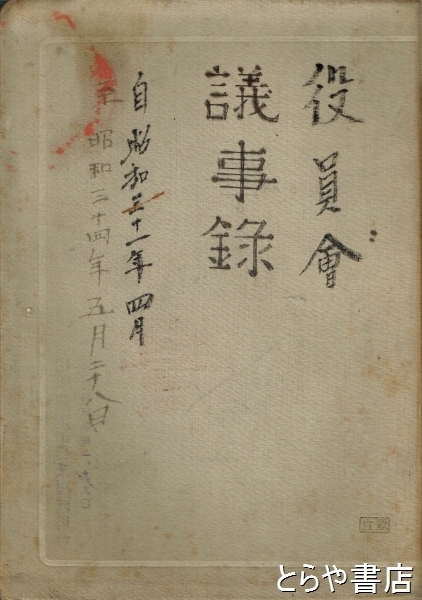 役員會
議事錄
自昭和三十一年四月
至昭和三十四年五月二十八日
とらや書店